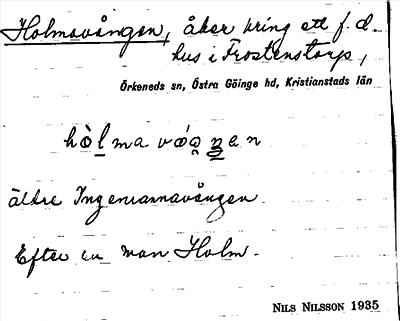 Holmavången, åker kring ett f.d.
hus i Frostenstorp,
Örkeneds sn, Östra Göinge hd, Kristianstads län
hòlmavóaŋen
äldre Ingemannavången.
Efter en man Holm.
NILS NILSSON 1935